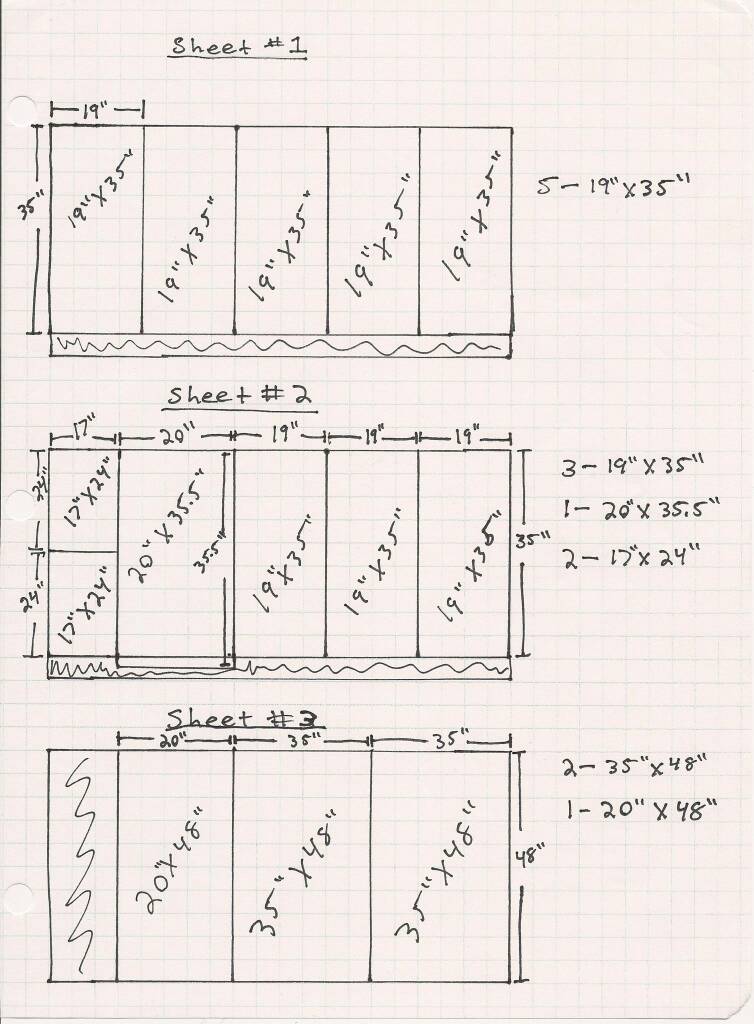 Sheet #1
19"
35"
19" X 35"
19" X 35"
19" X 35"
19" X 35"
19" X 35"
5 - 19" X 35"
Sheet #2
17" 20" 19" 19" 19"
24"
24"
17" X 24"
17" X 24"
20" X 35.5"
35.5"
19" X 35"
19" X 35"
19" X 35"
35"
3 - 19" X 35"
1 - 20" X 35.5"
2 - 17" X 24"
Sheet #3
20" 35" 35"
20" X 48"
35" X 48"
35" X 48"
48"
2 - 35" X 48"
1 - 20" X 48"